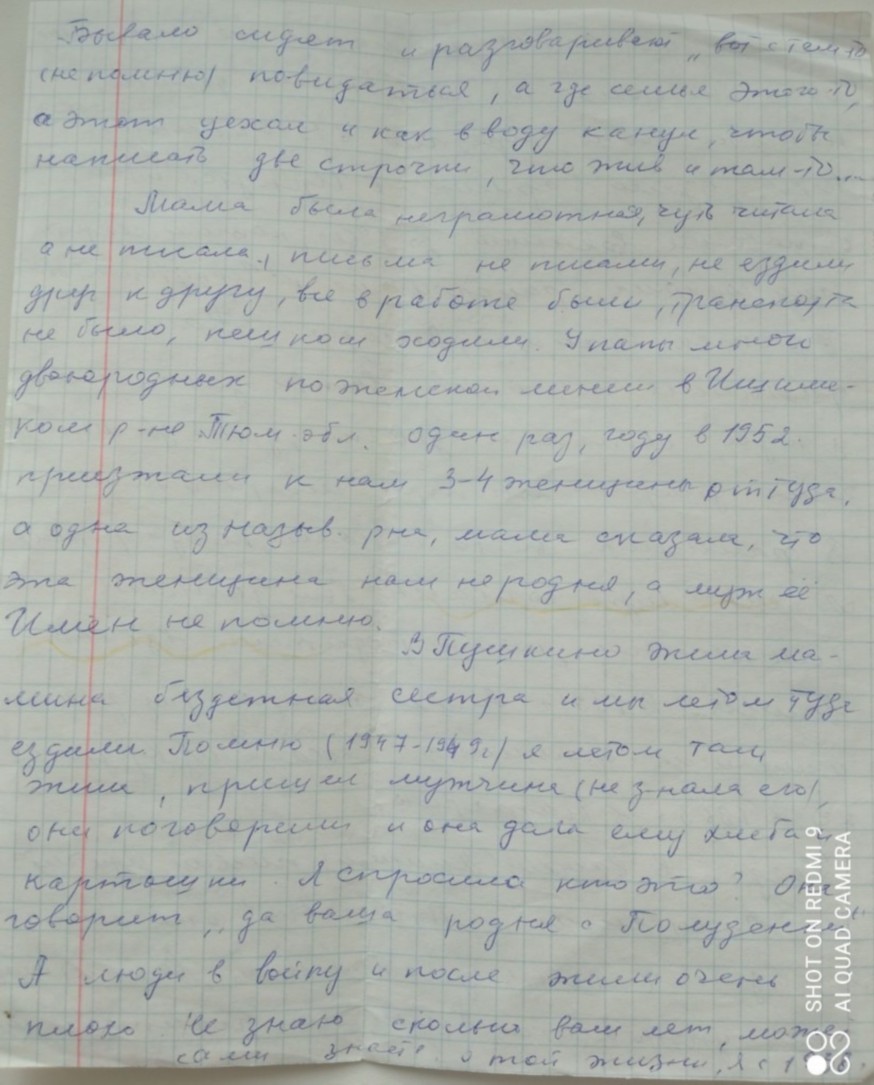 Бывало сидят и разговаривают „вот с тем-то
(не помню) повидаться, а где семья этого-то,
а этот уехал и как в воду канул, чтобы
написать две строчки, что жив и там-то...
Мама была неграмотная, чуть читала
а не писала, письма не писали, не ездили
друг к другу, все в работе были, транспорта
не было, пешком ходили. У папы много
двоюродных по женской линии в Ишимс-
ком р-не Тюм. обл. один раз, году в 1952.
приезжали к нам 3-4 женщины оттуда,
а одна из назыв. рна, мама сказала, что
эта женщина нам не родня, а муж её
Имён не помню.
В Пушкино жила ма-
мина бездетная сестра и мы летом туда
ездили. Помню (1947-1949г) я летом там
жила, пришел мужчина (не знала его),
они поговорили и она дала ему хлеба и
картошки. Я спросила кто это? Она
говорит „да ваша родня
А люди в войну и после жили очень
плохо. Не знаю сколько вам лет, может
сами знаете о той жизни, я с
SHOT ON REDMI 9
AI QUAD CAMERA